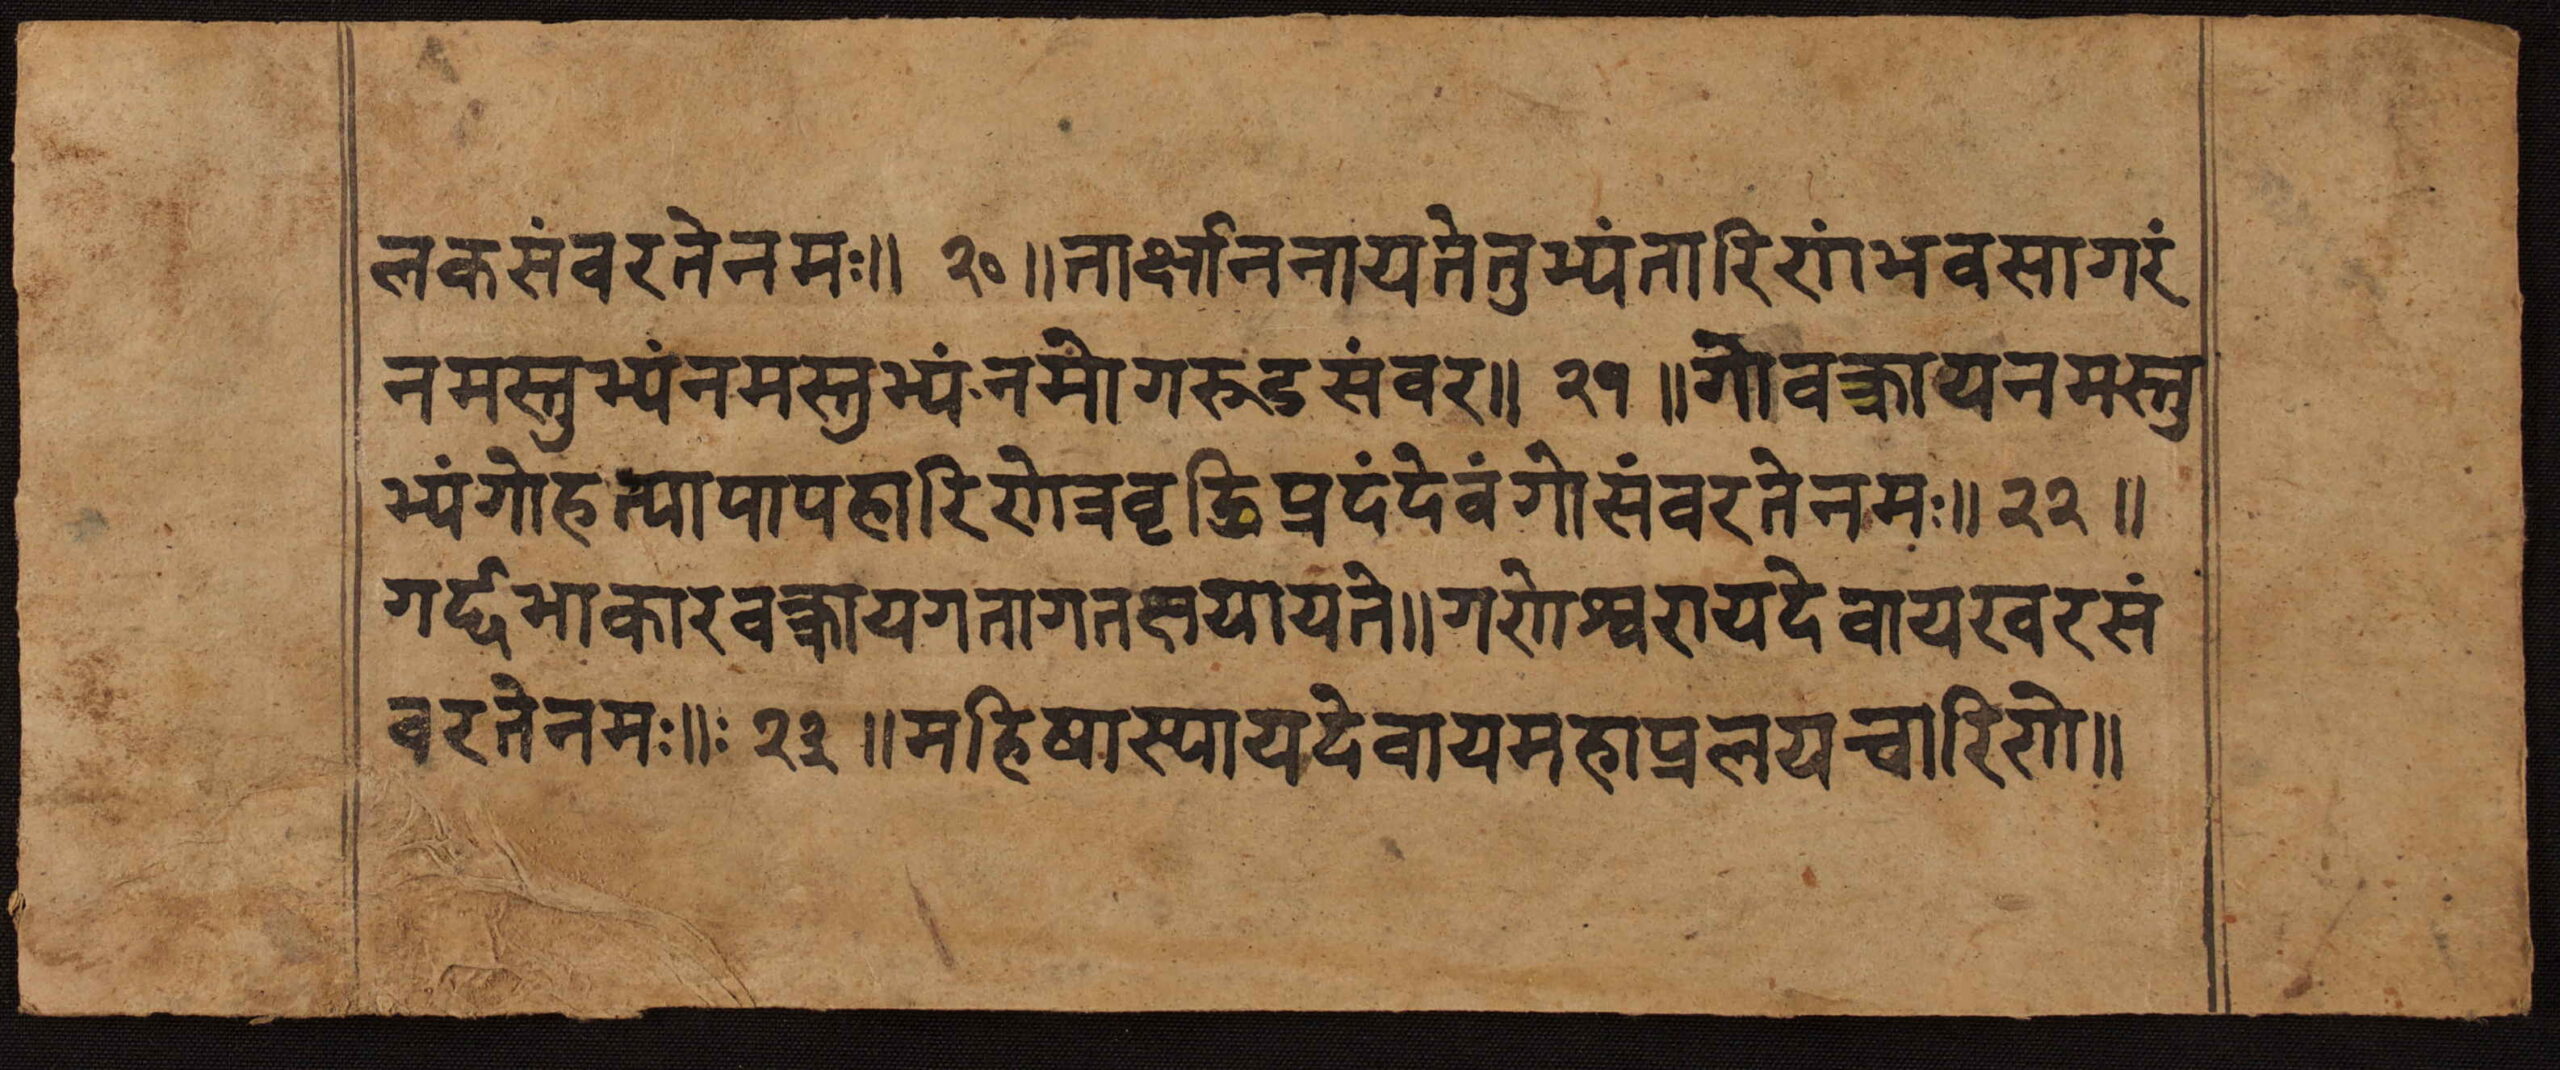 लकसंवरतेनमः॥ २०॥तार्क्षाननायतेतुभ्यंतारिणंभवसागरं
नमस्तुभ्यंनमस्तुभ्यंनमोगरूडसंवर॥ २१॥गोवक्त्रायनमस्तु
भ्यंगोहत्यापापहारिणेत्रवृद्धिप्रदंदेवंगोसंवरतेनमः॥२२॥
गर्द्दभाकारवक्त्रायगतागतक्षयायते॥गणेश्वरायदेवायखरसं
वरतेनमः॥ः २३॥महिषास्यायदेवायमहाप्रलयचारिणे॥